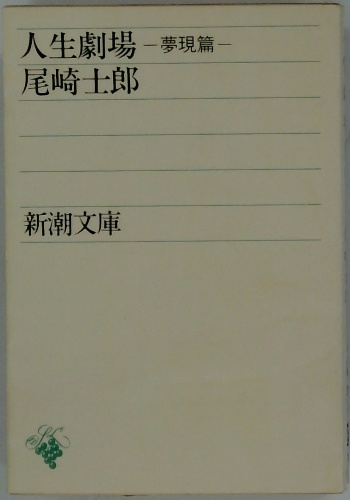 人生劇場 —夢現篇—
尾崎士郎
新潮文庫